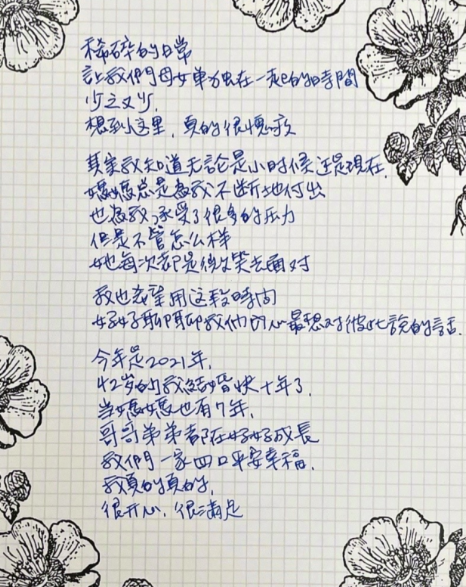 稀碎的日常
讓我們母女单独在一起的時間
少之又少,
想到这里,真的很愧疚
其实我知道无論是小时候还是現在,
媽媽总是為我不断地付出
也為我承受了很多的压力
但是不管怎么样
她每次都是微笑去面对
我也希望用这段時间
好好聊聊我们内心最想对彼此說的話.
今年是2021年,
42岁的我結婚快十年了,
当媽媽也有7年,
哥哥弟弟都在好好成長
我們一家四口平安幸福,
我真的真的,
很开心,很滿足